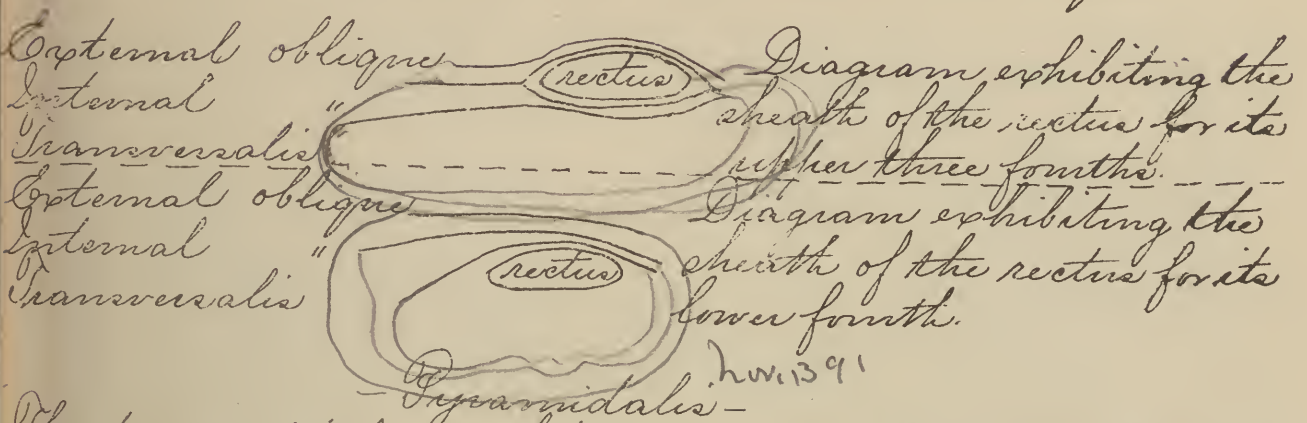 External oblique
Internal "
Transversalis "
rectus
Diagram exhibiting the
sheath of the rectus for its
upper three fourths.
External oblique
Internal "
Transversalis
rectus
Diagram exhibiting the
sheath of the rectus for its
lower fourth.
Nov. 13 91
- Pyramidalis -